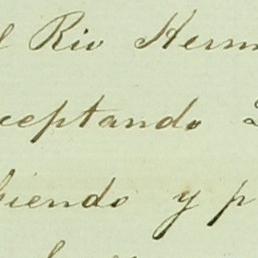 l Rio Herm
ceptando
biendo y p